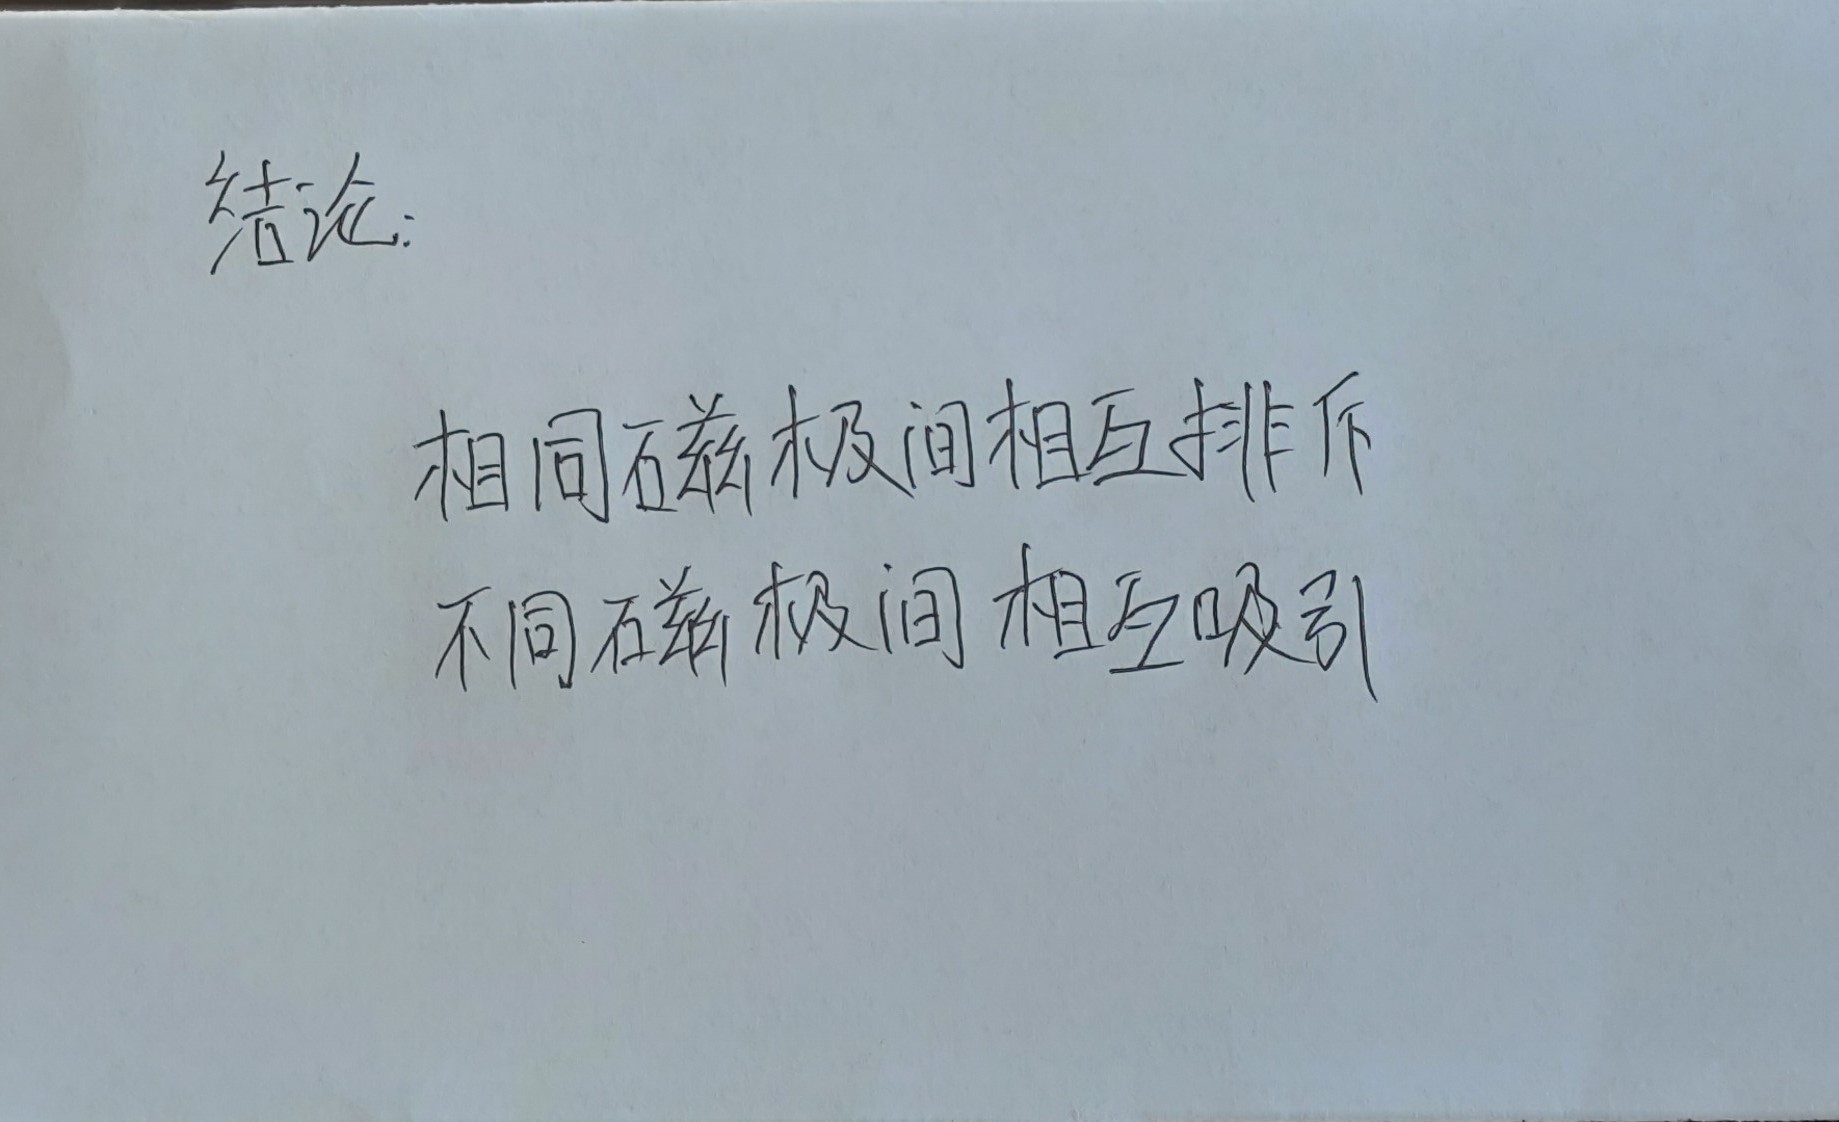 结论:
相同磁极间相互排斥
不同磁极间相互吸引